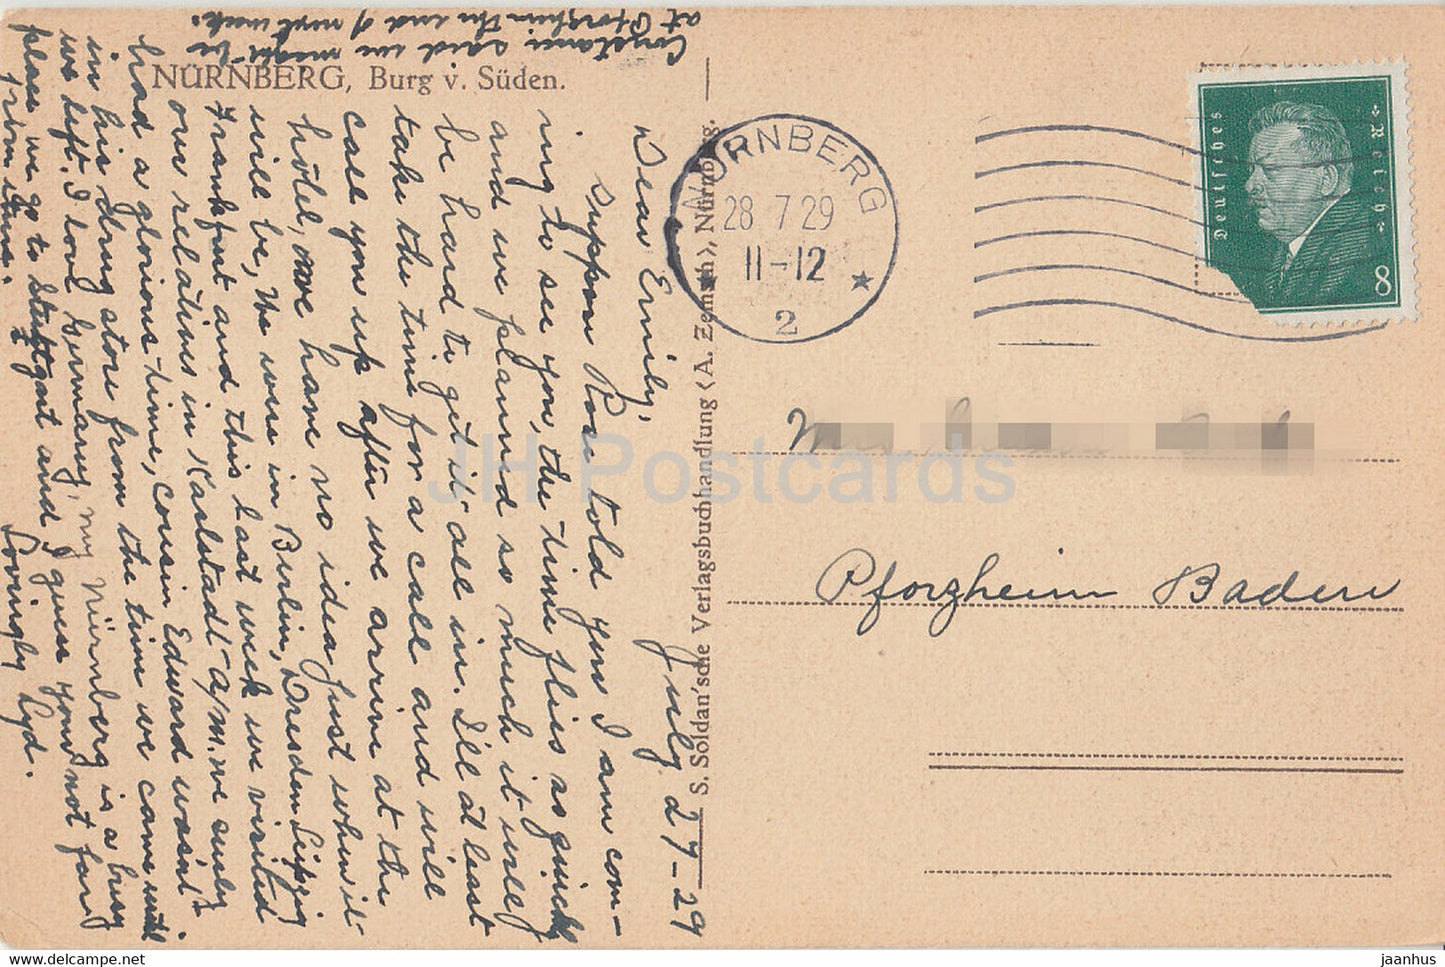 NÜRNBERG, Burg v. Süden.
July 27-29
Dear Emily,
Suppose Rose told you I am com-
ing to see you, the time flies as quickly
and we planned so much it will
be hard to get it all in. I'll at least
take the time for a call and will
call you up after we arrive at the
hôtel, we have no idea just when it
will be, We were in Berlin, Dresden Leipzig
Frankfurt and this last week we visited
our relatives in Karlstadt a/m. we surely
had a glorious time, cousin Edward wasn't
in his drug store from the time we came until
we left. I love Germany, my Nürnberg is a busy
place we go to Stuttgart and I guess you're not far
from there.
Lovingly Lyd.
said we might be
at Pforzheim the end of next week.
S. Soldan'sche Verlagsbuchhandlung (A. Zemsch), Nürnberg.
NÜRNBERG
28 7 29
11-12
2
Deutsches Reich
8
Pforzheim Baden
JH Postcards
jaanhus